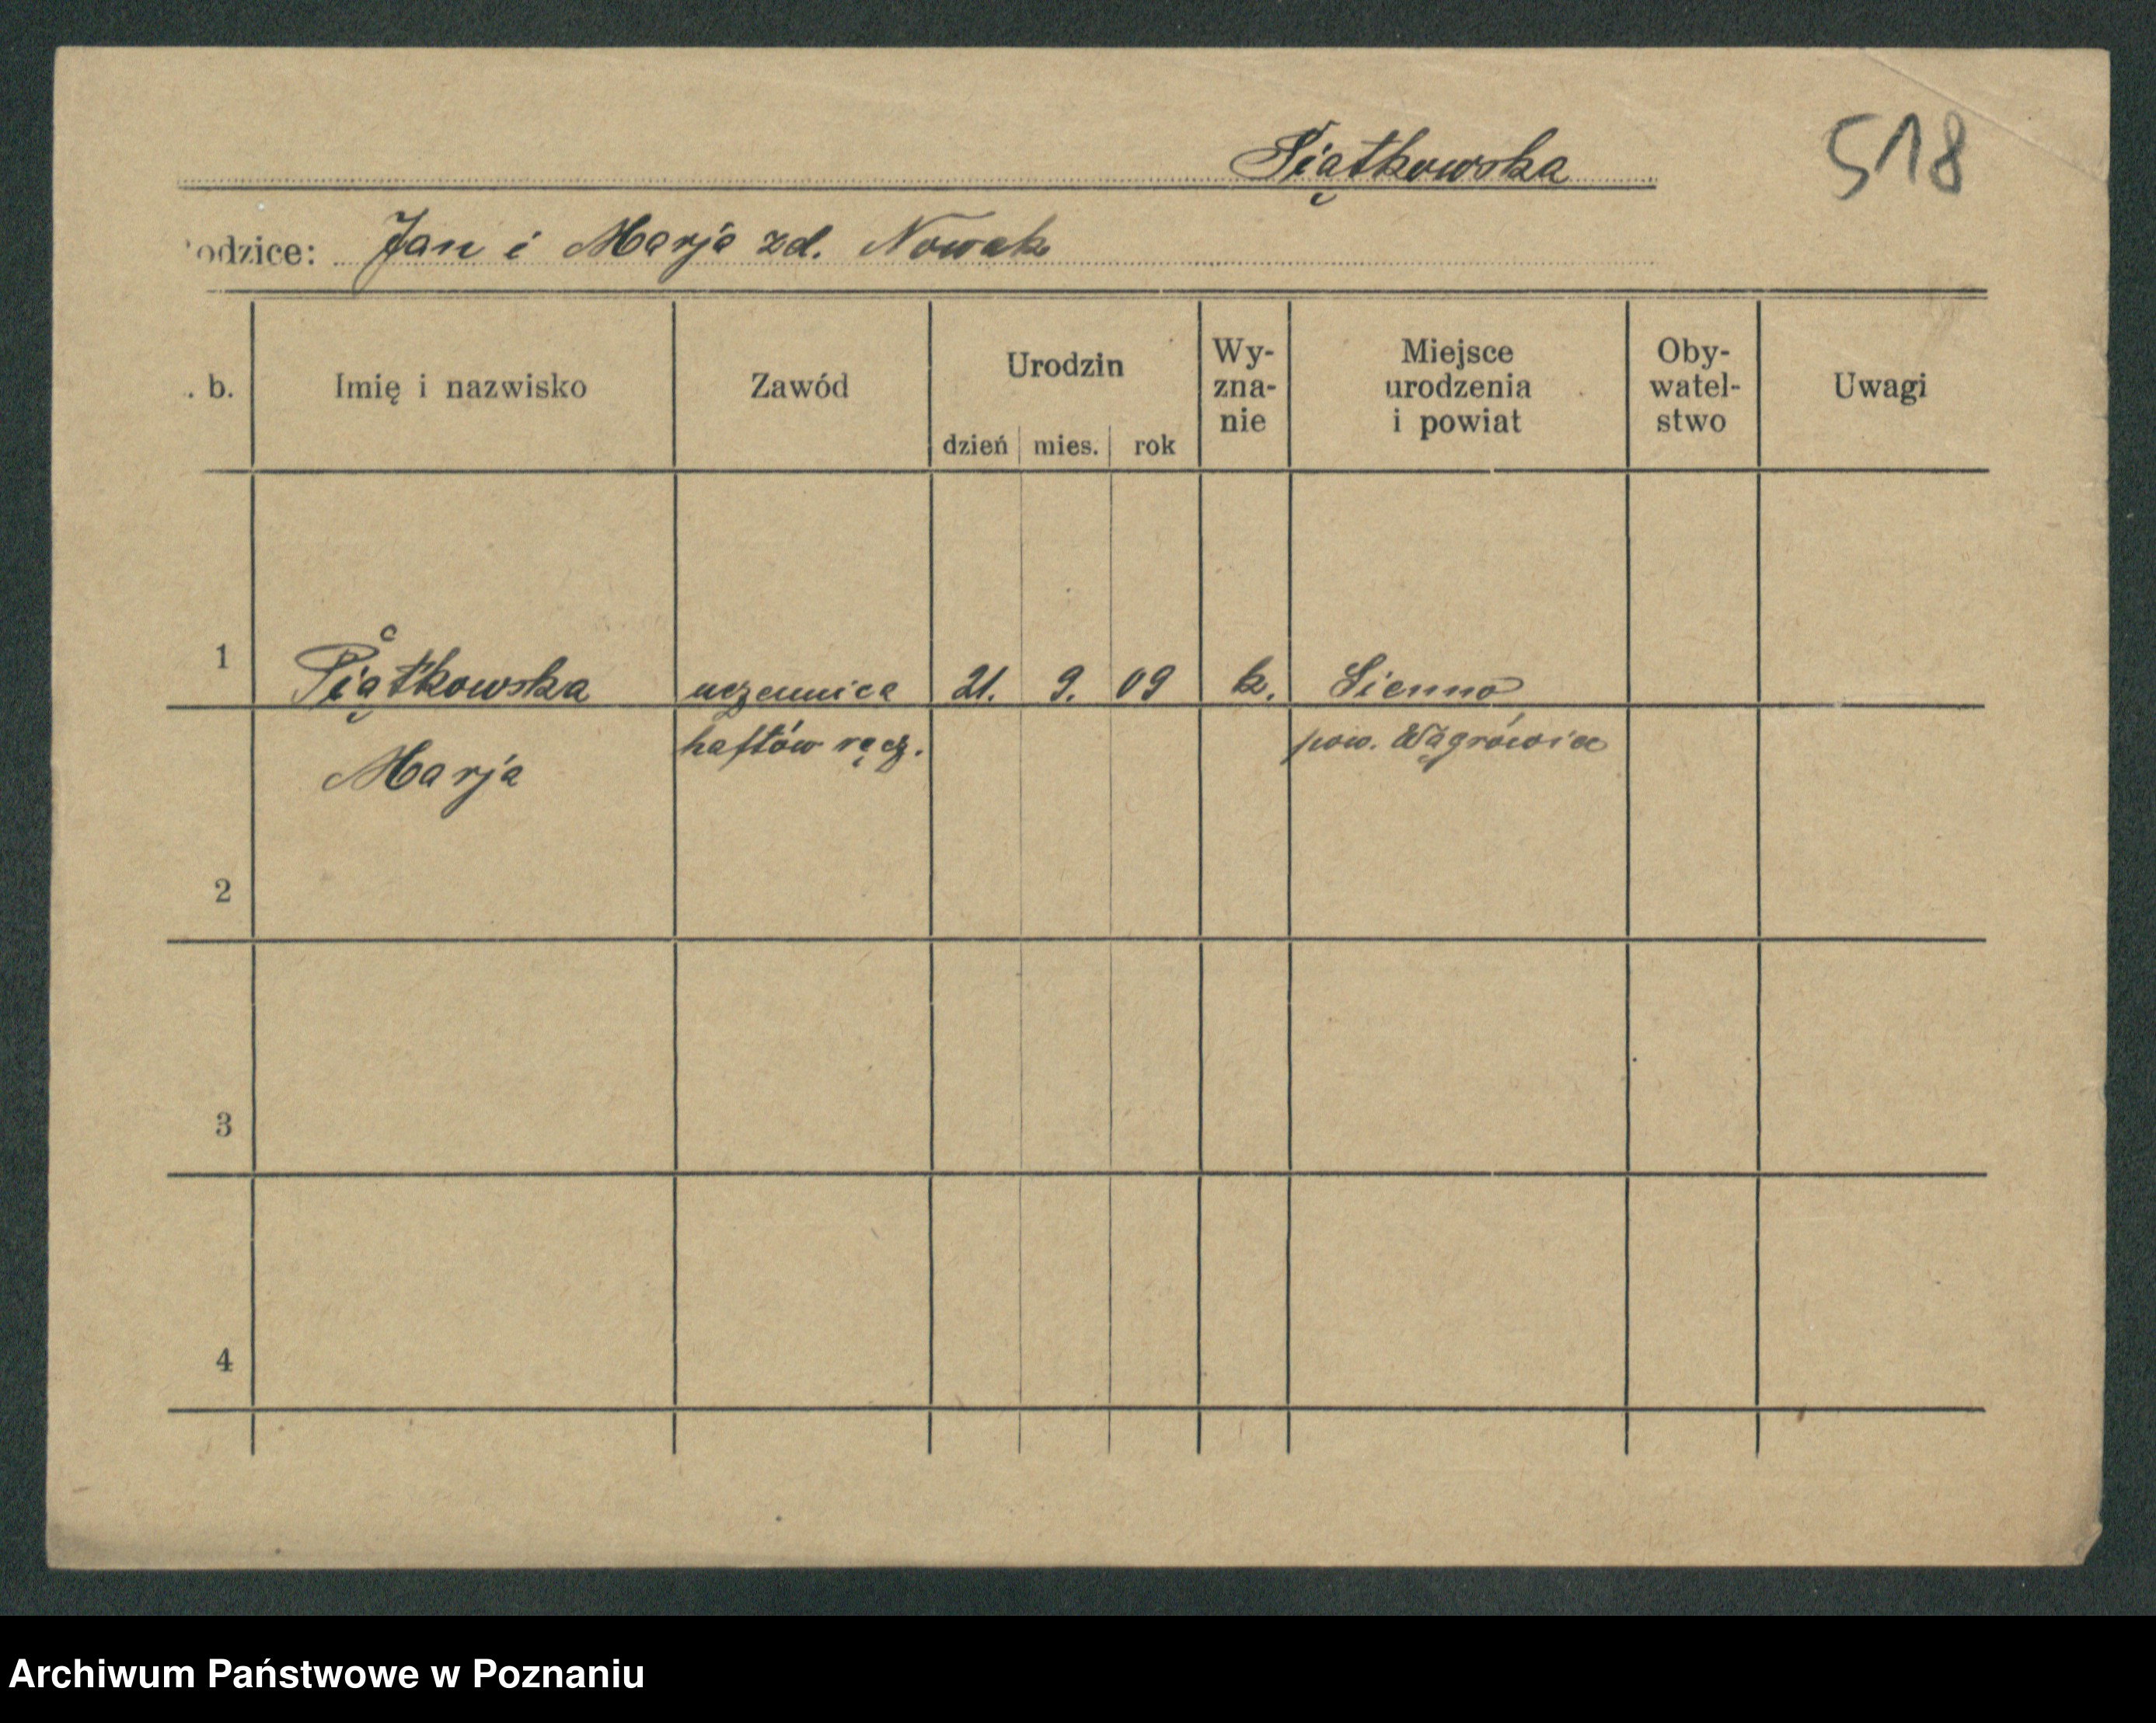 Piątkowska
518
odzice: Jan i Marja zd. Nowak
. b.
Imię i nazwisko
Zawód
Urodzin
dzień mies. rok
Wy-
zna-
nie
Miejsce
urodzenia
i powiat
Oby-
watel-
stwo
Uwagi
1 Piątkowska uczennica 21. 9. 09 k. Sienno
haftów ręcz. pow. Wągrówiec
Marja
2
3
4
Archiwum Państwowe w Poznaniu